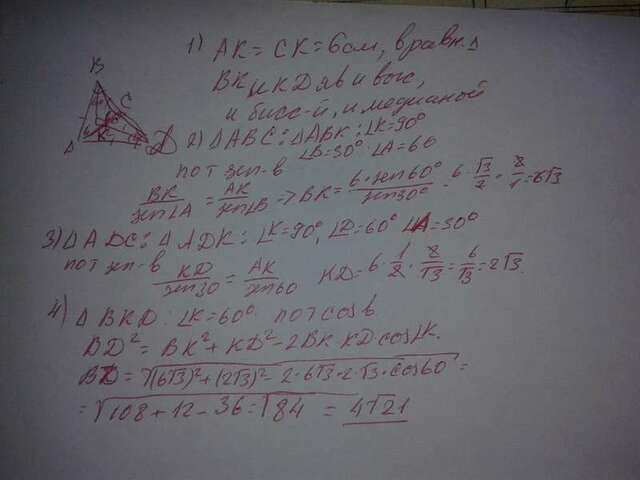 1) AK = CK = 6 см, в равн. Δ
BK и KD яв и выс,
и бисс-й, и медианой
B
C
A
K
D
2) ΔABC: ΔABK: ∠K=90°
∠B=30° ∠A=60
по т sin-в
BK/sin∠A = AK/sin∠B => BK = 6·sin60°/sin30° = 6·√3/2·2/1=6√3
3) ΔADC: ΔADK: ∠K=90°, ∠D=60° ∠A=30°
по т sin-в KD/sin30 = AK/sin60 KD=6·1/2·2/√3=6/√3=2√3.
4) ΔBKD: ∠K=60° по т cos в
BD² = BK²+KD²-2BK·KD·cos∠K.
BD = √(6√3)²+(2√3)²-2·6√3·2·√3·cos60° =
= √108+12-36 = √84 = 4√21